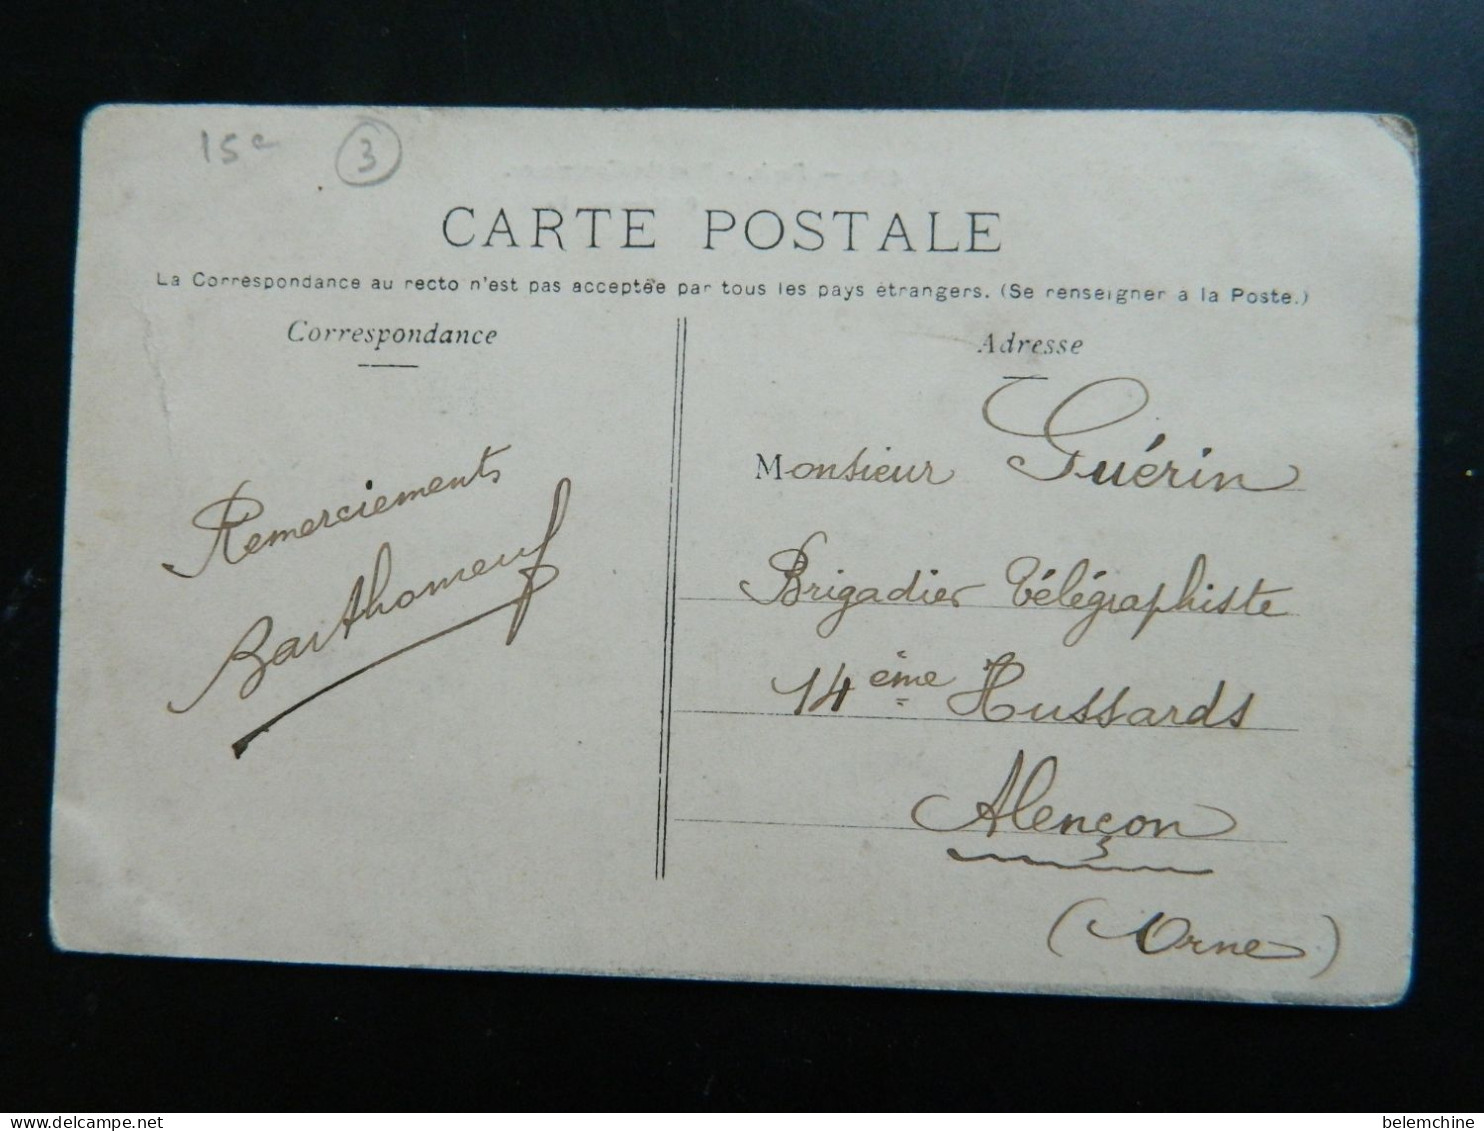 15c 3
CARTE POSTALE
La Correspondance au recto n'est pas acceptée par tous les pays étrangers. (Se renseigner à la Poste.)
Correspondance
Adresse
Remerciements
Barthomeuf
Monsieur Guérin
Brigadier Télégraphiste
14ème Hussards
Alençon
(Orne)
belemchine